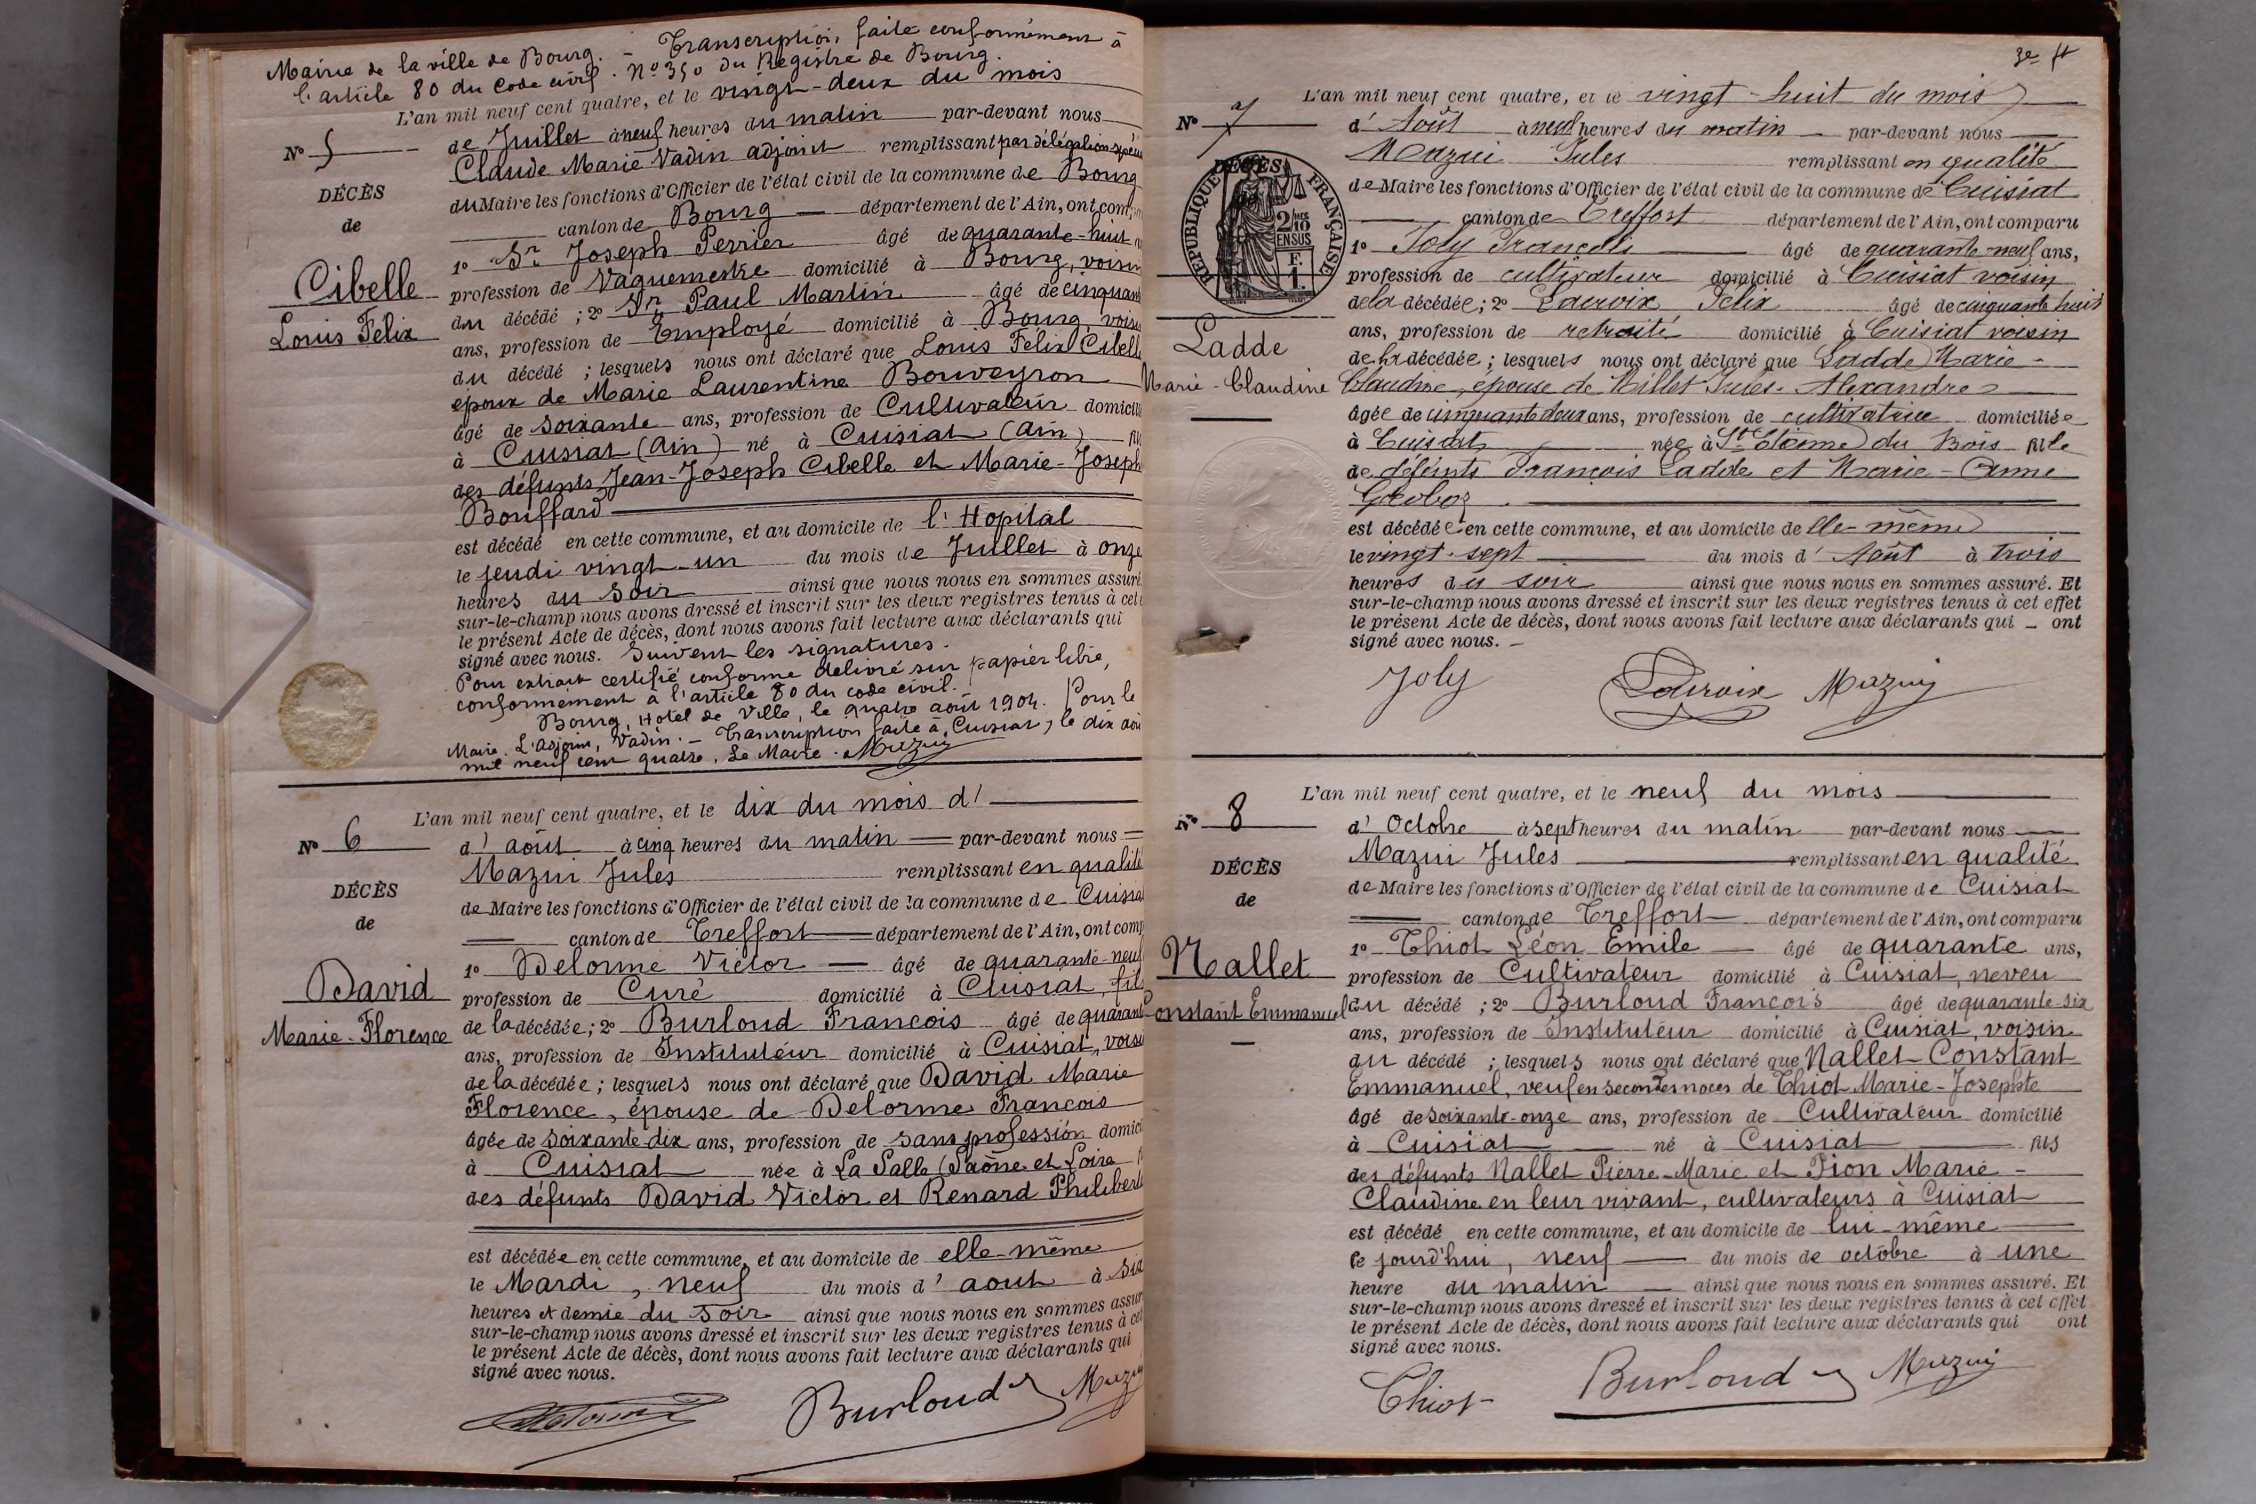 Mairie de la ville de Bourg. – Transcription, faite conformément à
l'article 80 du code civil. No 350 du Registre de Bourg.
L'an mil neuf cent quatre, et le vingt-deux du mois
No 5
de Juillet à neuf heures du matin par-devant nous
Claude Marie Vadin adjoint remplissant par délégation
DÉCÈS
du Maire les fonctions d'Officier de l'état civil de la commune de Bourg
de
canton de Bourg département de l'Ain, ont
1o Sr Joseph Perrier âgé de quarante-huit
Cibelle
profession de Vaguemestre domicilié à Bourg, voisin
Louis Félix
du décédé ; 2o Sr Paul Martin âgé de cinquante
ans, profession de Employé domicilié à Bourg, voisin
du décédé ; lesquels nous ont déclaré que Louis Félix Cibelle
époux de Marie Laurentine Bouveyron
âgé de soixante ans, profession de Cultivateur domicilié
à Cuisiat (Ain) né à Cuisiat (Ain)
des défunts Jean-Joseph Cibelle et Marie-Joseph
Bouffard
est décédé en cette commune, et au domicile de l'Hopital
le jeudi vingt-un du mois de Juillet à onze
heures du soir ainsi que nous nous en sommes assuré.
sur-le-champ nous avons dressé et inscrit sur les deux registres tenus à cet
le présent Acte de décès, dont nous avons fait lecture aux déclarants qui
signé avec nous. Suivent les signatures.
Pour extrait certifié conforme délivré sur papier libre,
conformément à l'article 80 du code civil.
Bourg, Hotel de Ville, le quatre août 1904. Pour le
Maire. L'adjoint, Vadin. – Transcription faite à Cuisiat, le dix août
mil neuf cent quatre. Le Maire. Mazui
L'an mil neuf cent quatre, et le dix du mois d'
No 6
d'août à cinq heures du matin par-devant nous
Mazui Jules remplissant en qualité
DÉCÈS
de Maire les fonctions d'Officier de l'état civil de la commune de Cuisiat
de
canton de Treffort département de l'Ain, ont
1o Delorme Victor âgé de quarante-neuf
David
profession de Curé domicilié à Cuisiat, fils
Marie-Florence
de la décédée ; 2o Burloud François âgé de quarante
ans, profession de Instituteur domicilié à Cuisiat, voisin
de la décédée ; lesquels nous ont déclaré que David Marie
Florence, épouse de Delorme François
âgée de soixante-dix ans, profession de sans profession
à Cuisiat née à La Salle (Saône et Loire
des défunts David Victor et Renard Philiberte
est décédée en cette commune, et au domicile de elle-même
le Mardi, neuf du mois d'aout à six
heures et demie du soir ainsi que nous nous en sommes assuré
sur-le-champ nous avons dressé et inscrit sur les deux registres tenus à cet
le présent Acte de décès, dont nous avons fait lecture aux déclarants qui
signé avec nous.
Burloud Mazui
L'an mil neuf cent quatre, et le vingt-huit du mois
No 7
d'Août à neuf heures du matin par-devant nous
Mazui Jules remplissant en qualité
DÉCÈS
RÉPUBLIQUE FRANÇAISE
2/10 EN SUS
F. 1.
de Maire les fonctions d'Officier de l'état civil de la commune de Cuisiat
canton de Treffort département de l'Ain, ont comparu
1o Joly François âgé de quarante-neuf ans,
profession de cultivateur domicilié à Cuisiat voisin
de la décédée ; 2o Lacroix Félix âgé de cinquante huit
Ladde
ans, profession de retraité domicilié à Cuisiat voisin
de la décédée ; lesquels nous ont déclaré que Ladde Marie-
Marie-Claudine
Claudine, épouse de Millet Jules-Alexandre
âgée de cinquante deux ans, profession de cultivatrice domiciliée
à Cuisiat née à St Etienne du Bois fille
de défunts François Ladde et Marie-Anne
Groboz
est décédée en cette commune, et au domicile de elle-même
le vingt-sept du mois d'Août à trois
heures du soir ainsi que nous nous en sommes assuré. Et
sur-le-champ nous avons dressé et inscrit sur les deux registres tenus à cet effet
le présent Acte de décès, dont nous avons fait lecture aux déclarants qui ont
signé avec nous.
Joly Lacroix Mazui
L'an mil neuf cent quatre, et le neuf du mois
No 8
d'Octobre à sept heures du matin par-devant nous
Mazui Jules remplissant en qualité
DÉCÈS
de Maire les fonctions d'Officier de l'état civil de la commune de Cuisiat
de
canton de Treffort département de l'Ain, ont comparu
1o Thiot Léon Emile âgé de quarante ans,
Nallet
profession de Cultivateur domicilié à Cuisiat, neveu
Constant Emmanuel
du décédé ; 2o Burloud François âgé de quarante-six
ans, profession de Instituteur domicilié à Cuisiat, voisin
du décédé ; lesquels nous ont déclaré que Nallet Constant
Emmanuel, veuf en secondes noces de Thiot Marie-Josephte
âgé de soixante-onze ans, profession de Cultivateur domicilié
à Cuisiat né à Cuisiat fils
des défunts Nallet Pierre-Marie et Pion Marie-
Claudine en leur vivant, cultivateurs à Cuisiat
est décédé en cette commune, et au domicile de lui-même
le jourd'hui, neuf du mois de octobre à une
heure du matin ainsi que nous nous en sommes assuré. Et
sur-le-champ nous avons dressé et inscrit sur les deux registres tenus à cet effet
le présent Acte de décès, dont nous avons fait lecture aux déclarants qui ont
signé avec nous.
Thiot Burloud Mazui